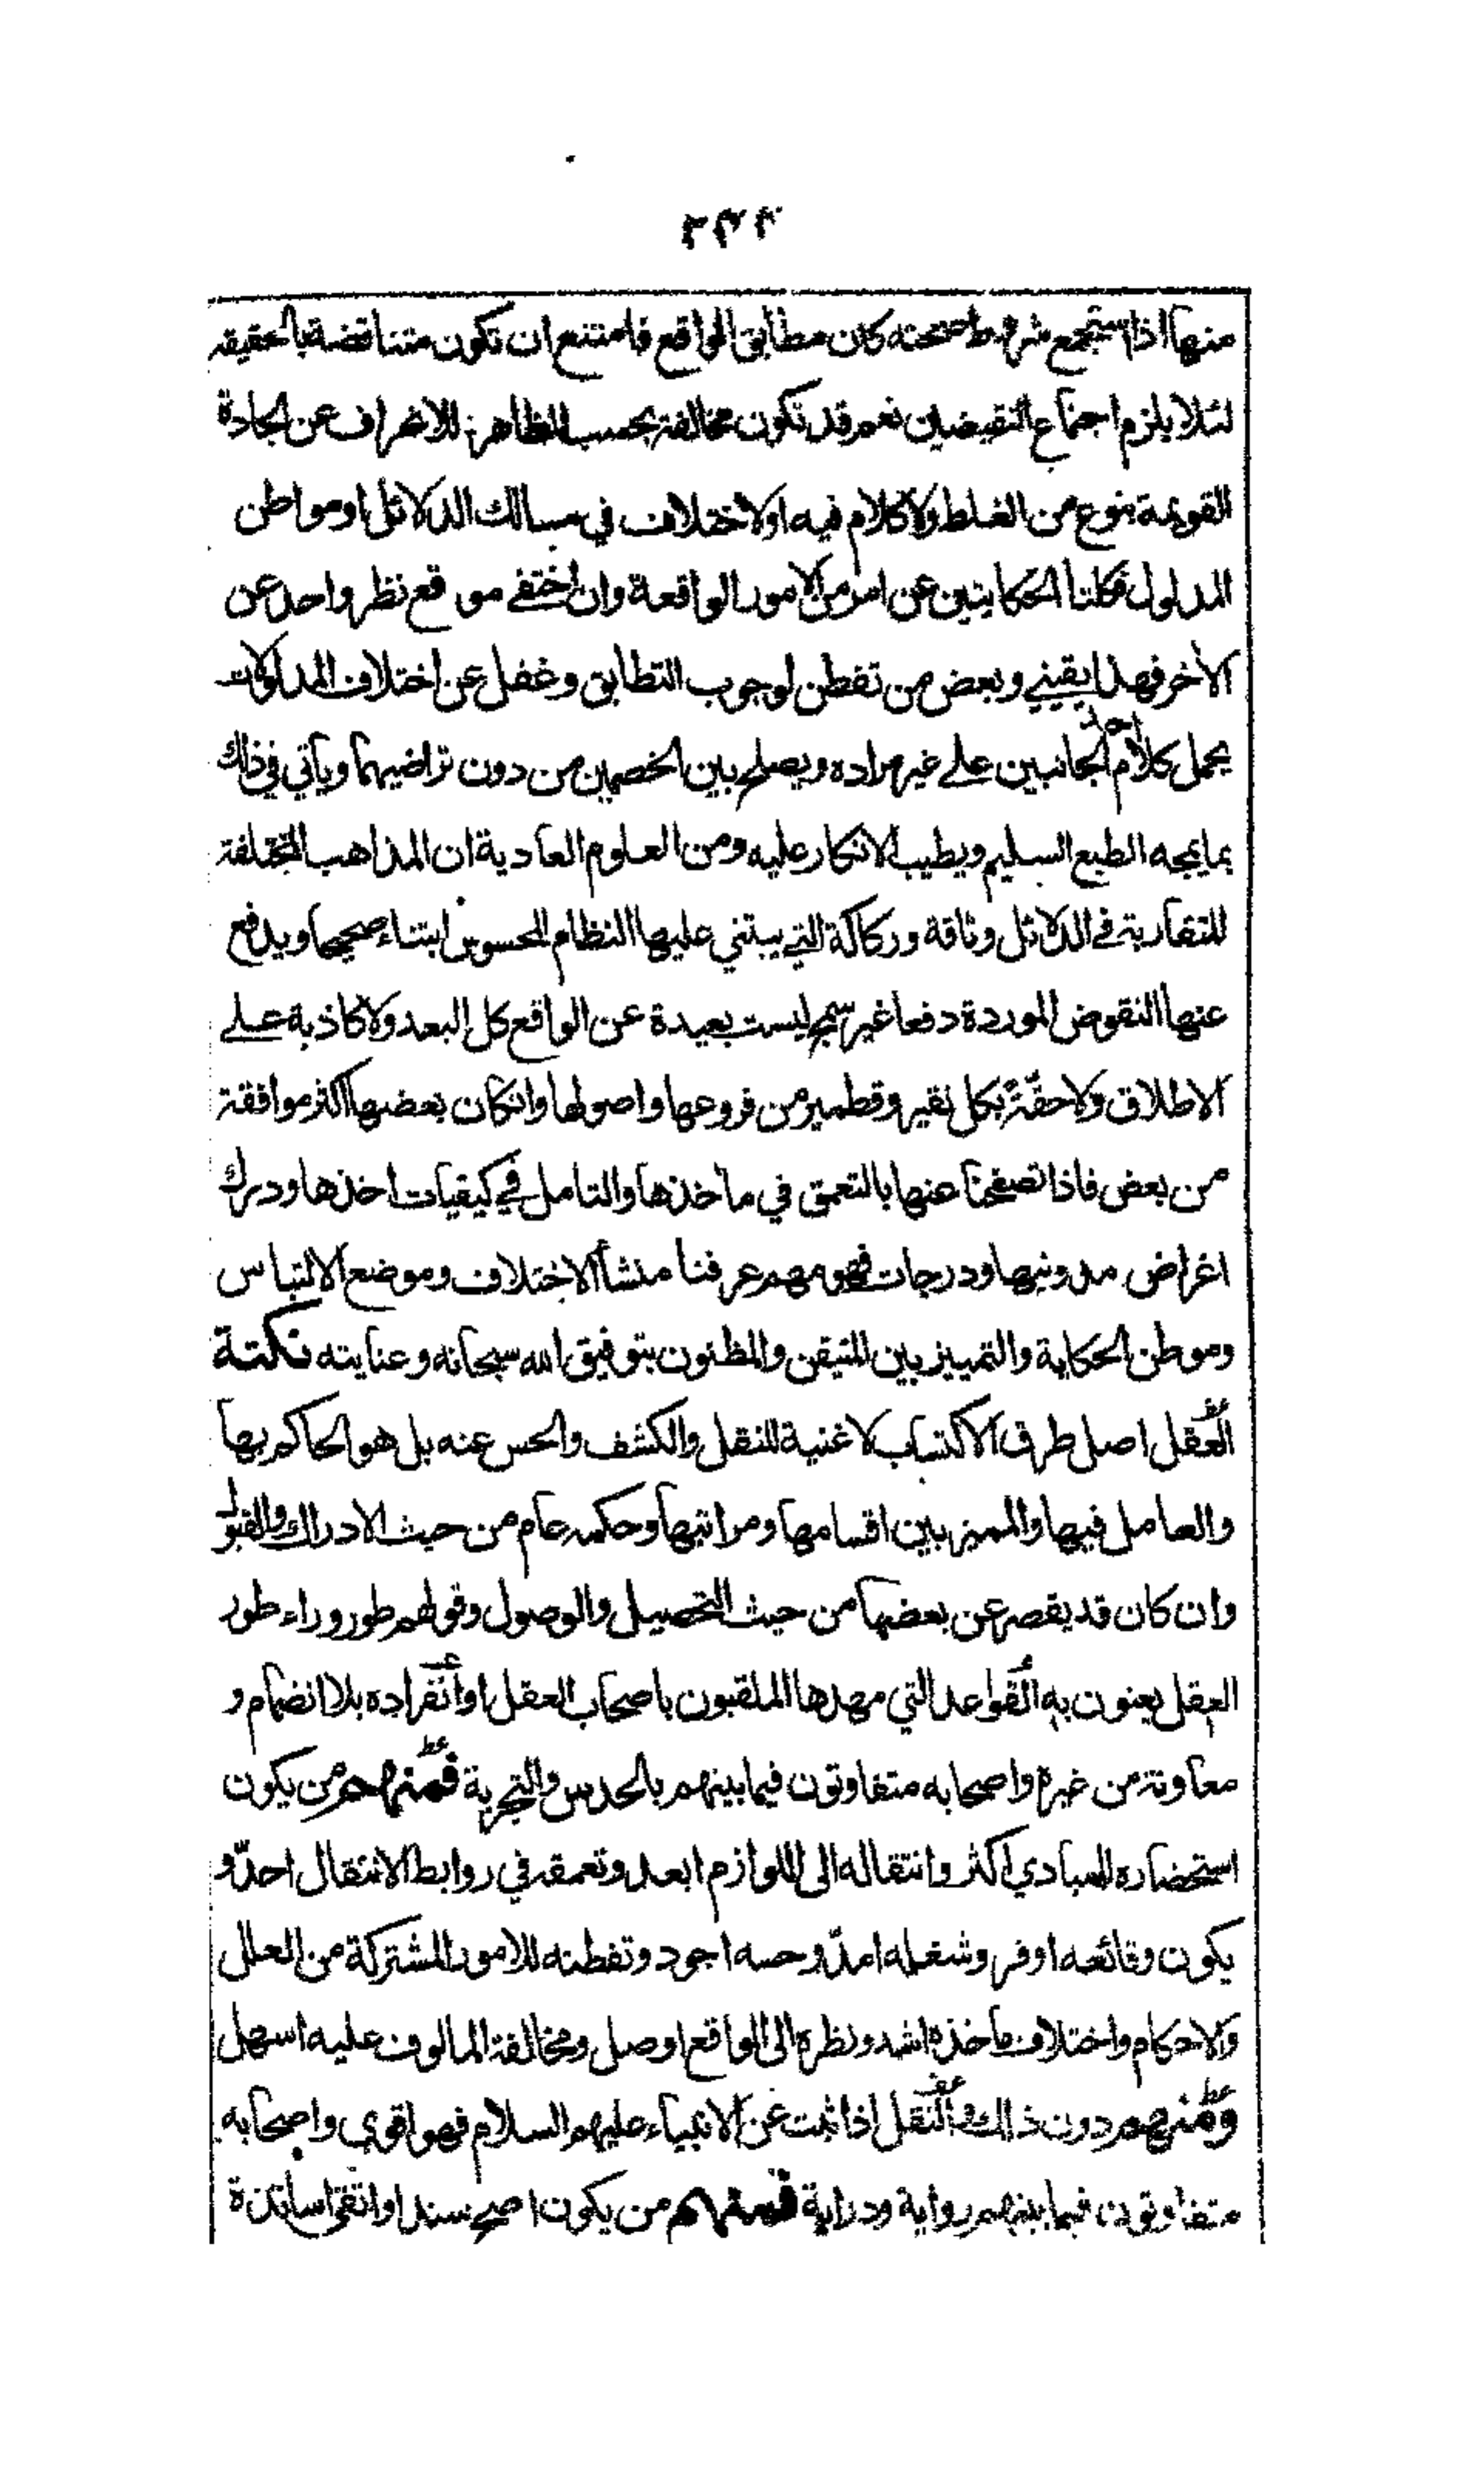 ٢٣٣
منها اذا استجمع شرائط صحته كان مطابق الواقع فامتنع ان تكون متناقضة بالحقيقة
لئلا يلزم اجتماع النقيضين نعم قد تكون مخالفة بحسب الظاهر للانحراف عن الجادة
القويمة بنوع من الغلط ولا كلام فيه او لاختلاف في مسالك الدلائل او مواطن
المدلول فكلتا الحكايتين عن امر من الامور الواقعة وان اختفى موقع نظر واحد عن
الآخر فهذا يقيني وبعض من تفطن لوجوب التطابق وغفل عن اختلاف المدلولات
يحمل كلام احد الجانبين على غير مراده ويصلح بين الخصمين من دون تراضيهما وياتي في ذلك
بما يمجه الطبع السليم ويطيب الانكار عليه ومن العلوم العادية ان المذاهب المختلفة
المتقاربة في الدلائل وثاقة وركاكة التي يبتني عليها النظام المحسوس ابتناء صحيحا ويدفع
عنها النقوض الموردة دفعا غير سمج ليست بعيدة عن الواقع كل البعد ولا كاذبة على
الاطلاق ولا حقة بكل نقير وقطمير من فروعها واصولها وان كان بعضها اكثر موافقة
من بعض فاذا تصفحنا عنها بالتعمق في ماخذها والتامل في كيفيات اخذها ودرك
اغراض مدونيها ودرجات فهومهم عرفنا منشأ الاختلاف وموضع الالتباس
وموطن الحكاية والتمييز بين المتيقن والمظنون بتوفيق الله سبحانه وعنايته نكتة
العقل اصل طرق الاكتساب لا غنية للنقل والكشف والحس عنه بل هو الحاكم بها
والعامل فيها والمميز بين اقسامها ومراتبها وحكمه عام من حيث الادراك والقبول
وان كان قد يقصر عن بعضها من حيث التحصيل والوصول وقولهم طور وراء طور
العقل يعنون به القواعد التي مهدها الملقبون باصحاب العقل او انفراده بلا انضمام و
معاونة من غيره واصحابه متفاوتون فيما بينهم بالحدس والتجربة فمنهم من يكون
استحضاره للمبادي اكثر وانتقاله الى اللوازم ابعد وتعمقه في روابط الانتقال احدّ و
يكون وقائعه اوفر وشغله امدّ وحسه اجود وتفطنه للامور المشتركة من العلل
والاحكام واختلاف ماخذه اشد ونظره الى الواقع اوصل ومخالفة المالوف عليه اسهل
ومنهم دون ذلك والنقل اذا ثبت عن الانبياء عليهم السلام فهو اقوى واصحابه
متفاوتون فيما بينهم رواية ودراية فمنهم من يكون اصح سندا واتقى اساتذة